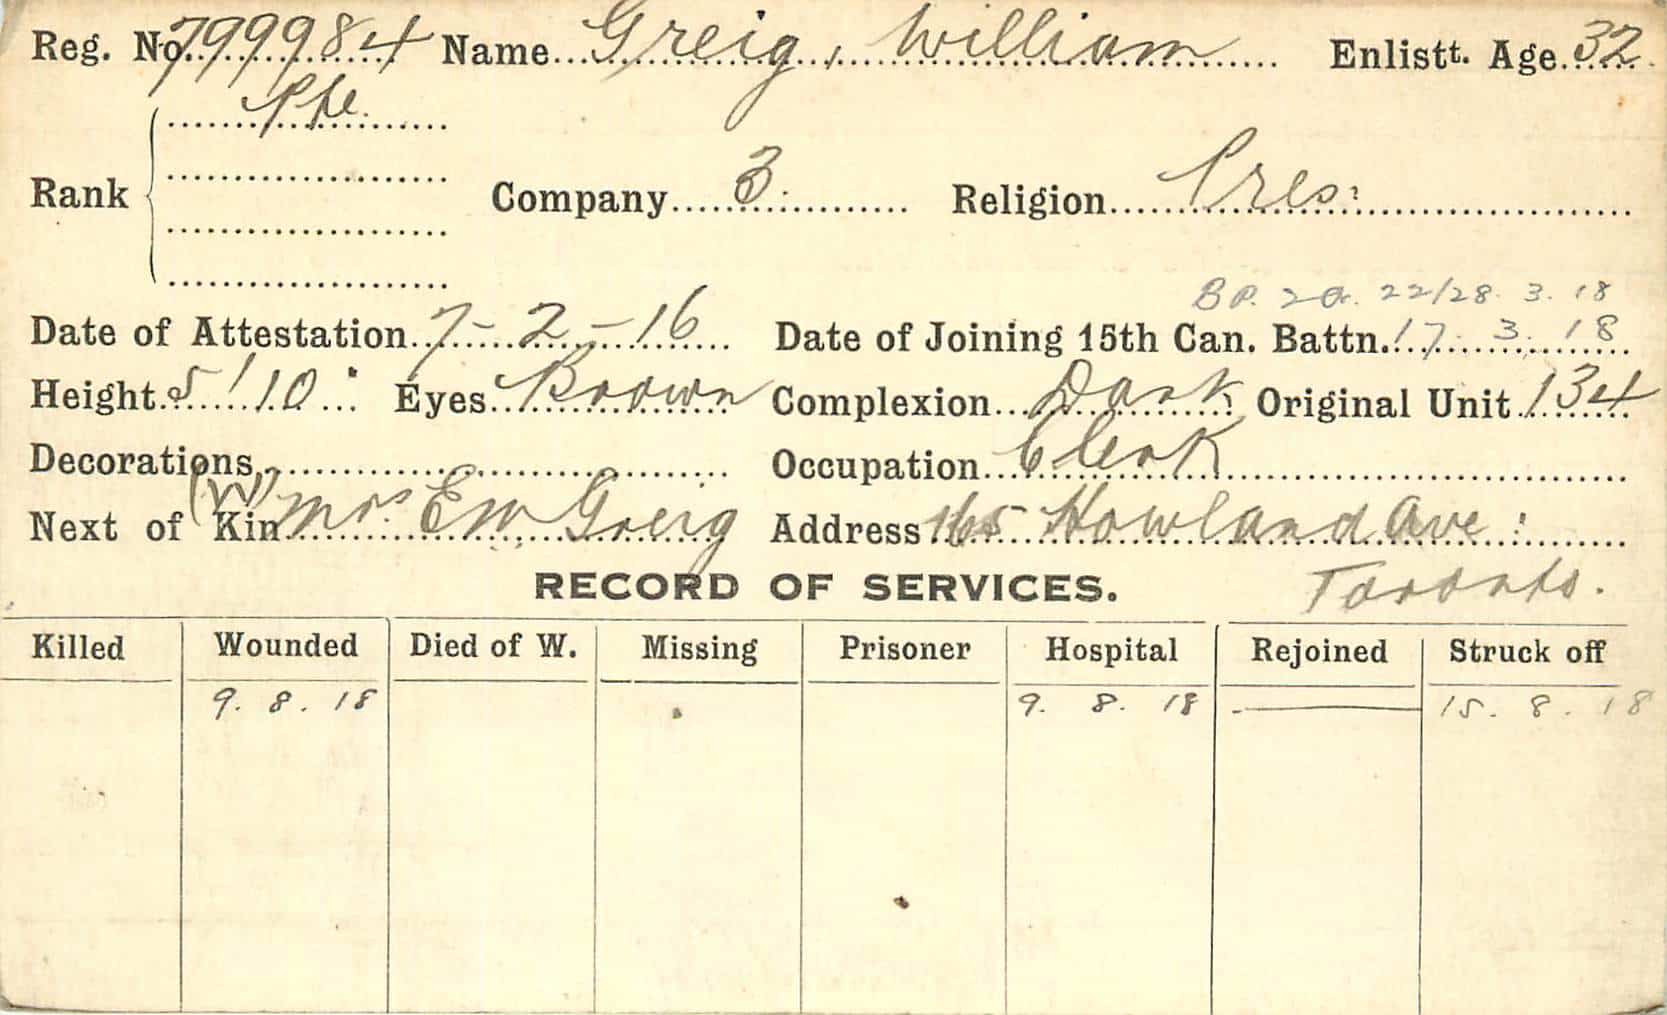 Reg. No. 799984 Name Greig, William Enlistt. Age 32
Pte.
Rank Company 3. Religion Pres:
22/28. 3. 18
Date of Attestation 7-2-16 Date of Joining 15th Can. Battn. 17. 3. 18
Height 5'10" Eyes Brown Complexion Dark Original Unit 134
Decorations Occupation Clerk
Next of Kin (W) Mrs. E M Greig Address 165 Howland Ave:
RECORD OF SERVICES. Toronto.
Killed Wounded Died of W. Missing Prisoner Hospital Rejoined Struck off
9. 8. 18 9. 8. 18 15. 8. 18